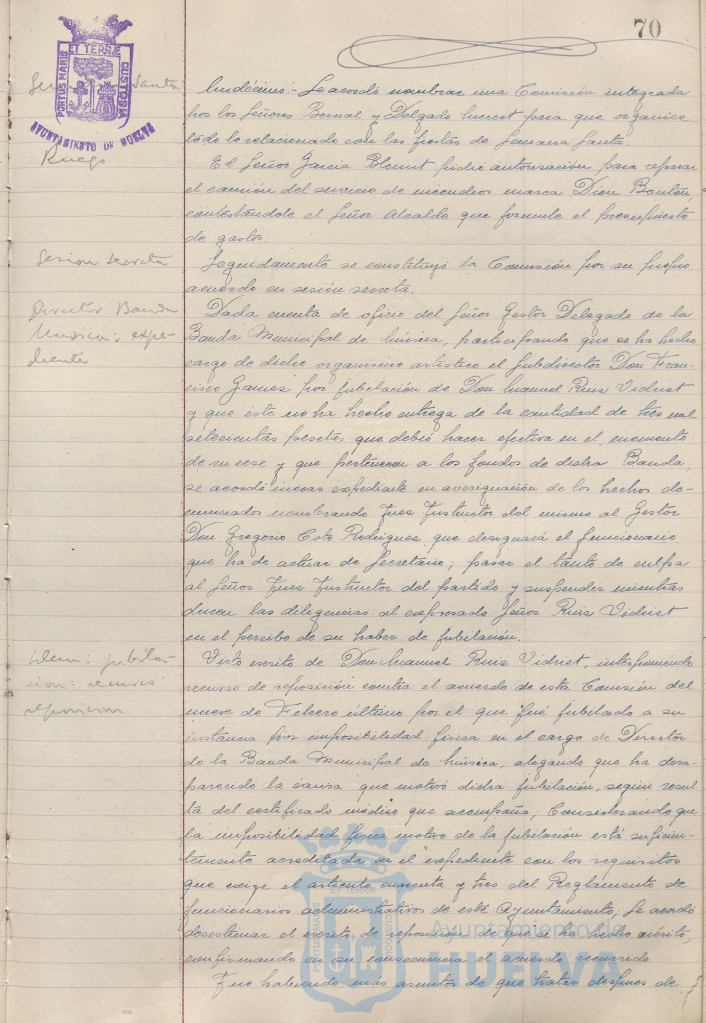 70
PORTUS MARIS ET TERRÆ CUSTODIA
AYUNTAMIENTO DE HUELVA
Santa
Undécimo.- Se acordó nombrar una Comisión integrada
por los Señores Bernal y Delgado para que organice
todo lo relacionado con las fiestas de Semana Santa.
Ruego
El Señor García Blount pidió autorización para reparar
el camión del servicio de incendios marca Dion Boutón,
contestándole el Señor Alcalde que formule el presupuesto
de gastos.
Sesion secreta
Seguidamente se constituyó la Comisión por su propio
acuerdo en sesión secreta.
Director Banda
Musica: expe-
diente
Dada cuenta de oficio del Señor Gestor Delegado de la
Banda Municipal de Música, participando que se ha hecho
cargo de dicho organismo artístico el Subdirector Don Fran-
cisco Games por jubilación de Don Manuel Ruiz Vidriet
y que éste no ha hecho entrega de la cantidad de tres mil
setecientas pesetas que debió hacer efectiva en el momento
de su cese y que pertenecen a los fondos de dicha Banda,
se acordó incoar expediente en averiguación de los hechos de-
nunciados nombrando Juez Instructor del mismo al Gestor
Don Gregorio Coto Rodríguez que designará el funcionario
que ha de actuar de Secretario; pasar el tanto de culpa
al Señor Juez Instructor del partido y suspender mientras
duren las diligencias al expresado Señor Ruiz Vidriet
en el percibo de su haber de jubilación.
Idem: jubila-
sion: recurso
reposicion
Visto escrito de Don Manuel Ruiz Vidriet, interponiendo
recurso de reposición contra el acuerdo de esta Comisión del
nueve de Febrero último por el que fué jubilado a su
instancia por imposibilidad física en el cargo de Director
de la Banda Municipal de Música, alegando que ha desa-
parecido la causa que motivó dicha jubilación, según resul-
ta del certificado médico que acompaña; Considerando que
la imposibilidad física motivo de la jubilación está suficien-
temente acreditada en el expediente con los requisitos
que exige el artículo cuarenta y tres del Reglamento de
funcionarios administrativos de este Ayuntamiento; Se acordó
desestimar el escrito de reposición de que se ha hecho mérito,
confirmando en su consecuencia el acuerdo recurrido.
Y no habiendo más asuntos de que tratar después de
Ayuntamiento de
HUELVA